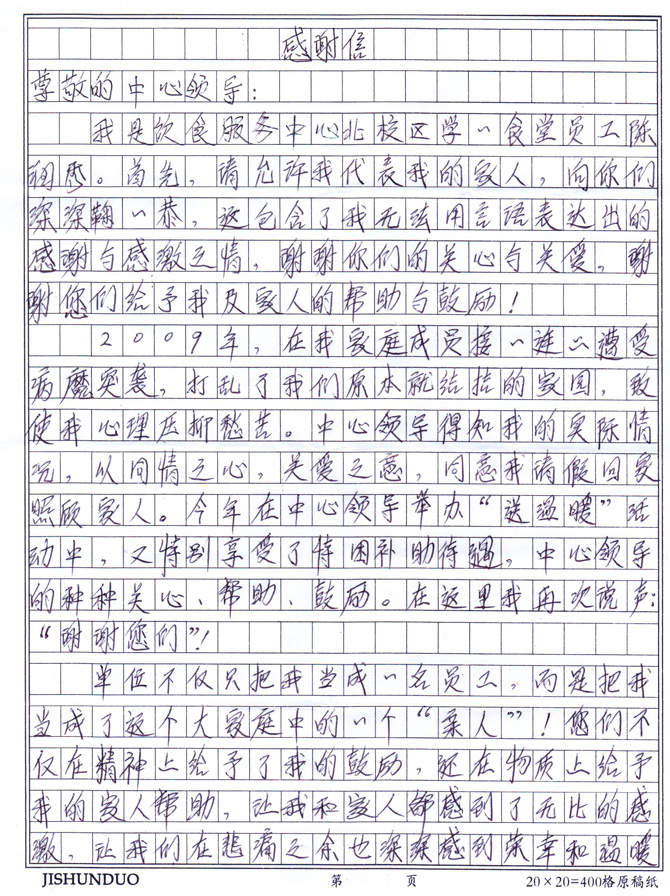 感谢信
尊敬的中心领导：
我是饮食服务中心北校区学一食堂员工陈
秀。首先，请允许我代表我的家人，向你们
深深鞠一恭，这包含了我无法用言语表达出的
感谢与感激之情，谢谢你们的关心与关爱，谢
谢您们给予我及家人的帮助与鼓励！
2009年，在我家庭成员接一连二遭受
病魔突袭，打乱了我们原本就结拮的家园，致
使我心理压抑愁苦。中心领导得知我的实际情
况，以同情之心，关爱之意，同意我请假回家
照顾家人。今年在中心领导举办“送温暖”活
动中，又特别享受了特困补助待遇，中心领导
的种种关心、帮助、鼓励。在这里我再次说声：
“谢谢您们”！
单位不仅只把我当成一名员工，而是把我
当成了这个大家庭中的一个“亲人”！您们不
仅在精神上给予了我的鼓励，还在物质上给予
我的家人帮助，让我和家人都感到了无比的感
激，让我们在悲痛之余也深深感到荣幸和温暖
JISHUNDUO 第 页 20×20=400格原稿纸